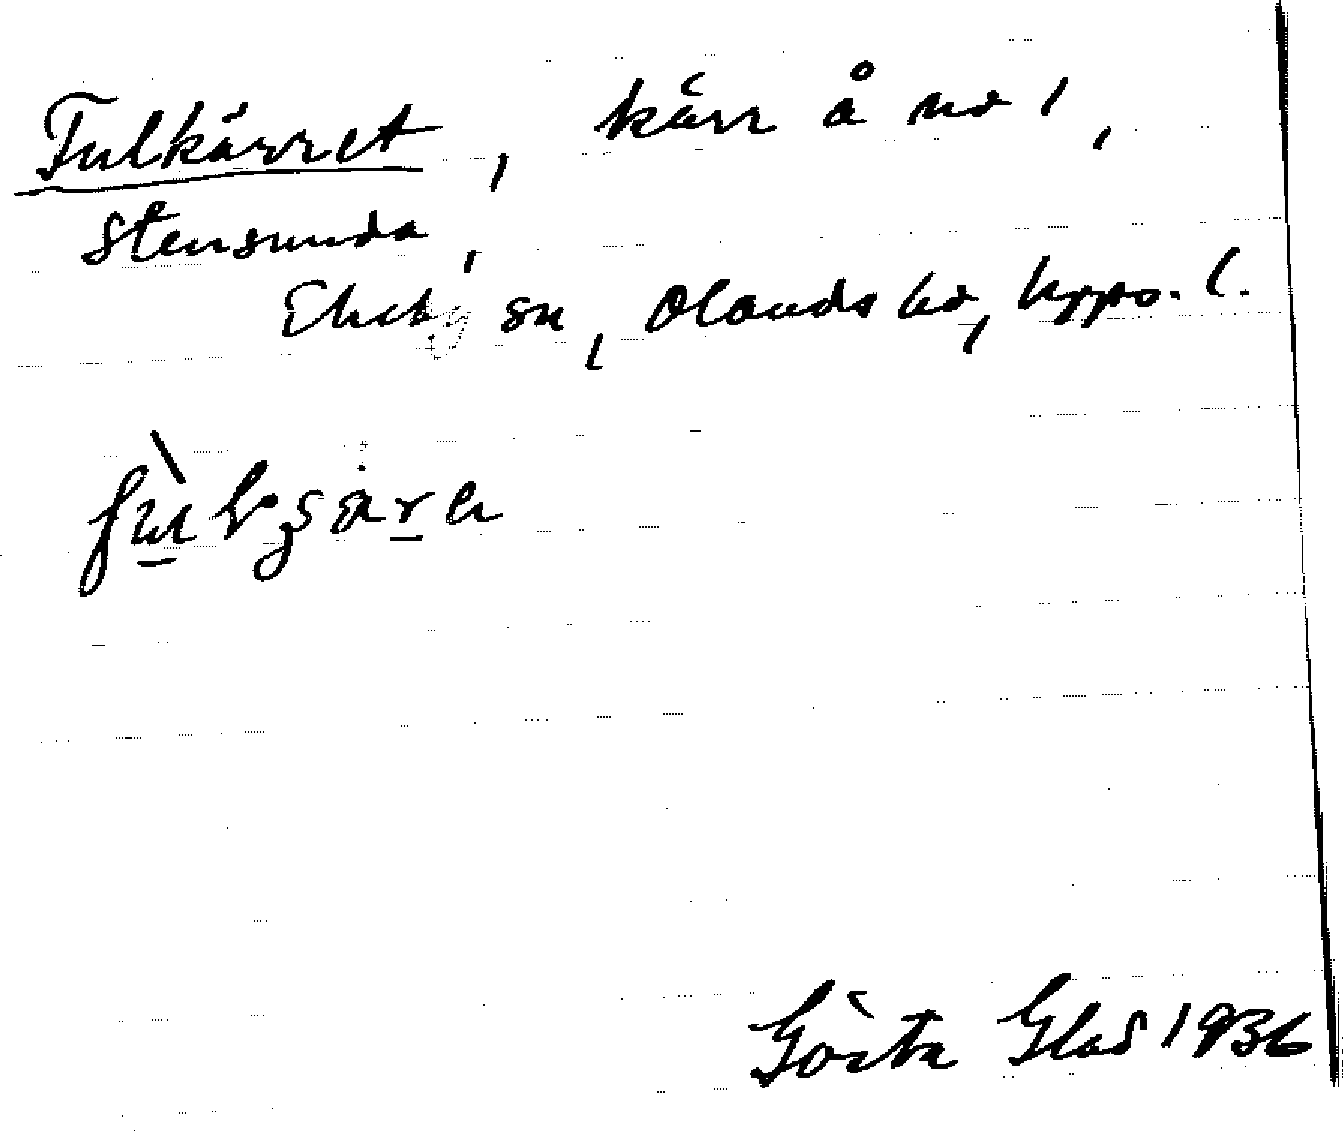 Fulkärret, kärr å nr 1,
Stensunda,
Ekeby sn, Olands hd, Upps. l.
Gösta Glad 1936